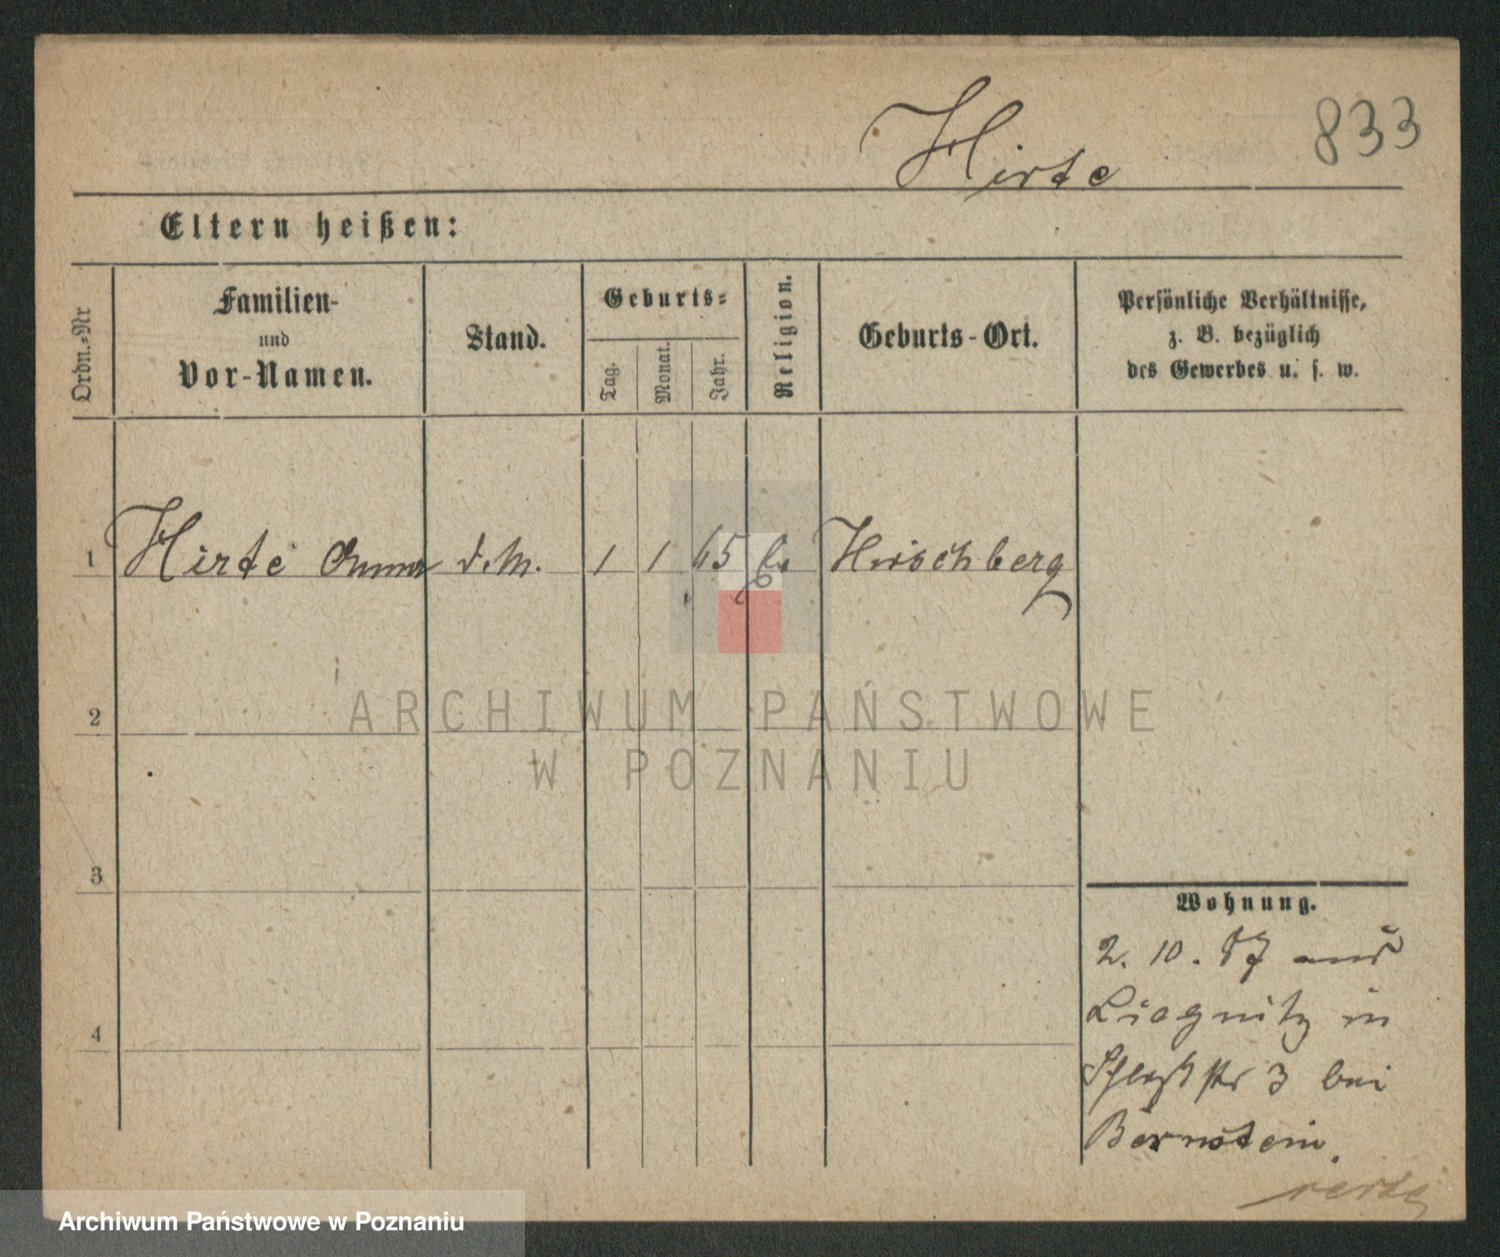 Hirte 833
Eltern heißen:
Ordn.=Nr Familien- und Vor-Namen. Stand. Geburts= Tag. Monat. Jahr. Religion. Geburts-Ort. Persönliche Verhältnisse, z. B. bezüglich des Gewerbes u. s. w.
1 Hirte Anna d. M. 1 1 65 Hirschberg
2
3
4
Wohnung.
2. 10. 87 aus
Liegnitz in
3 bei
Bernstein.
ARCHIWUM PAŃSTWOWE
W POZNANIU
Archiwum Państwowe w Poznaniu